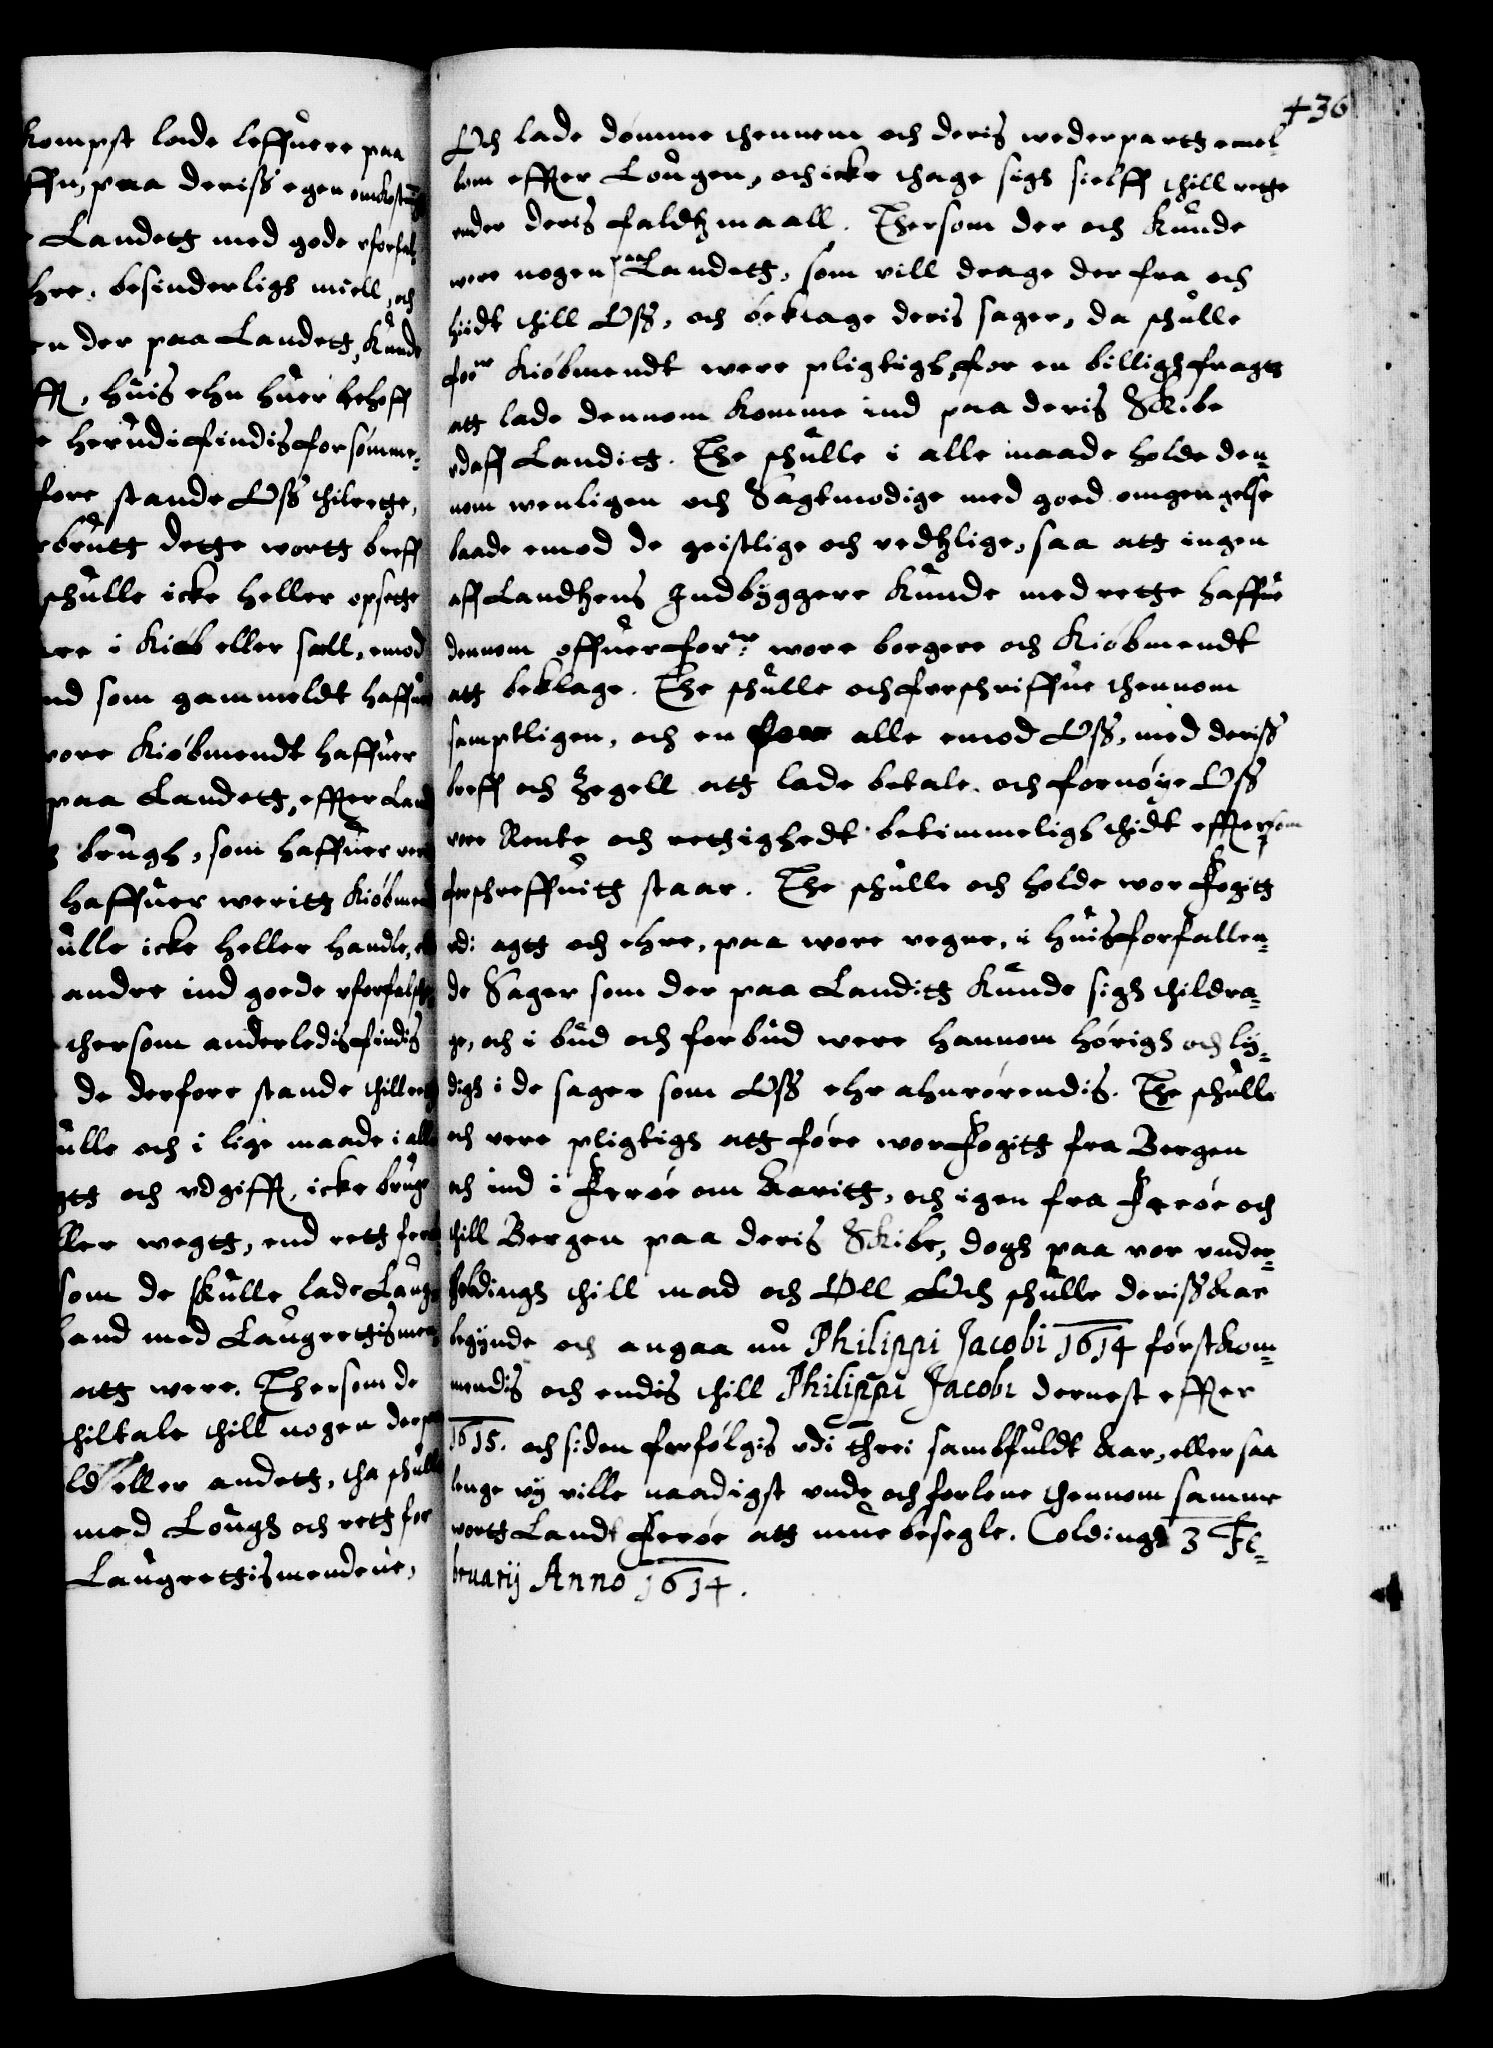 kompst lade leffuere paa
ffn, paa deriss egen omkostning
Landett med gode vforfal-
hre, besinderligh miell, och
en der paa Landett, kunde
ff, huis ehn huer behoff
e herudi findis forsømme-
fore stande Oss thilrette,
rbrutt dette wortt breff
schulle icke heller opsette
re i kiøb eller sæll, emod
nd som gammeldt haffuer
vore Kiøbmendt haffuer
paa Landett, effter Land
brugh, som haffuer veritt
haffuer weritt Kiøbmend
ulle icke heller handle,
andre ind goede vforfalsket
thersom anderledis findis
de derfore stande thill rette
ulle och i lige maade i alle
gtt och vdgifft, icke bruge
ller wegtt, end rett ferdig
som de skulle lade Laug
hand med Laugrettismend
att were. Thersom de
thiltale thill nogen der paa
ld eller andett, tha schulle
med Lough och rett for
Laugrettismendene,
436
Och lade dømme thennem och deris wederpartt emel-
lom effter Lougen, och icke thage sigh sielff thill rette
vnder deris faldhmaall. Thersom der och kunde
were nogen paa Landett, som vill drage der fra och
hiidt thill Oss, och beklage deris sager, da schulle
forne Kiøbmendt were pligtigh, for en billigh fragtt
att lade dennom komme ind paa deris Skibe
vdaff Landitt. The schulle i alle maade holde den-
nom wenligen och Sagtmodige med goed omgengelse
baade emod de geistlige och verdhlige, saa att ingen
aff Landhens Indbyggere kunde med rette haffue
dennom offuer forne wore borgere och Kiøbmendt
att beklage. The schulle och forschriffue thennom
samptligen, och en for alle emod Oss, med deriss
breff och Zegell att lade betale och fornøye Oss
vor Rente och rettighedt betimmeligh thidt effter som
forschreffuitt staar. The schulle och holde wor Fogitt
vdi agtt och ehre, paa wore vegne, i huis forfallen-
de Sager som der paa Landitt kunde sigh thildra-
ge, och i bud och forbud were hannom hørigh och ly-
digh i de sager som Oss ehr ahnrørendis. The schulle
och vere pligtigh att føre wor Fogitt fra Bergen
och ind i Ferøe om Aaritt, och igen fra Ferøe och
thill Bergen paa deris Skibe, dogh paa vor vnder-
holdingh thill mad och Øll Och schulle deriss Aar
begynde och angaa nu Philippi Jacobi 1614 førstkom-
mendis och endis thill Philippi Jacobi dernest effter
1615. och siden forfølgis vdi threi sambfuldt Aar, eller saa
lenge vy ville naadigst vnde och forlene thennom samme
wortt Landt Ferøe att mue besegle. Coldingh 3 Fe-
bruarij Anno 1614.